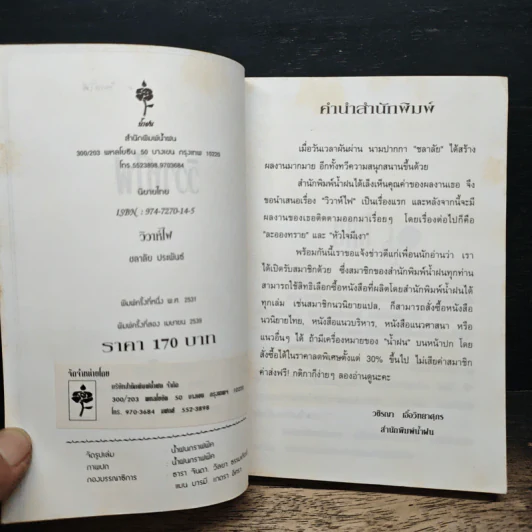 น้ำฝน
สำนักพิมพ์น้ำฝน
300/203 พหลโยธิน 50 บางเขน กรุงเทพ 10220
โทร.5523898,9703684
นิยายไทย
ISBN : 974-7270-14-5
วิวาห์ไฟ
ชลาลัย ประพันธ์
พิมพ์ครั้งที่หนึ่ง พ.ศ. 2531
พิมพ์ครั้งที่สอง เมษายน 2539
ราคา 170 บาท
จัดจำหน่ายโดย
บริษัทสำนักพิมพ์น้ำฝน จำกัด
300/203 พหลโยธิน 50 บางเขน กรุงเทพฯ 10220
โทร. 970-3684 แฟกซ์ 552-3898
จัดรูปเล่ม : น้ำฝนกราฟฟิค
ภาพปก : น้ำฝนกราฟฟิค
กองบรรณาธิการ : ธารา จินดา วัลยา
คำนำสำนักพิมพ์
เมื่อวันเวลาผันผ่าน นามปากกา "ชลาลัย" ได้สร้าง
ผลงานมากมาย อีกทั้งทวีความสนุกสนานขึ้นด้วย
สำนักพิมพ์น้ำฝนได้เล็งเห็นคุณค่าของผลงานเธอ จึง
ขอนำเสนอเรื่อง "วิวาห์ไฟ" เป็นเรื่องแรก และหลังจากนี้จะมี
ผลงานของเธอติดตามออกมาเรื่อยๆ โดยเรื่องต่อไปก็คือ
"ละอองทราย" และ "หัวใจมีเงา"
พร้อมกันนี้เราขอแจ้งข่าวดีแก่เพื่อนนักอ่านว่า เรา
ได้เปิดรับสมาชิกด้วย ซึ่งสมาชิกของสำนักพิมพ์น้ำฝนทุกท่าน
สามารถใช้สิทธิเลือกซื้อหนังสือที่ผลิตโดยสำนักพิมพ์น้ำฝนได้
ทุกเล่ม เช่นสมาชิกนวนิยายแปล, ก็สามารถสั่งซื้อหนังสือ
นวนิยายไทย, หนังสือแนวบริหาร, หนังสือแนวศาสนา หรือ
แนวอื่นๆ ได้ ถ้ามีเครื่องหมายของ "น้ำฝน" บนหน้าปก โดย
สั่งซื้อได้ในราคาลดพิเศษตั้งแต่ 30% ขึ้นไป ไม่เสียค่าสมาชิก
ค่าส่งฟรี! กติกาก็ง่ายๆ ลองอ่านดูนะคะ
วชิรญา เอื้อวิทยาศุภร
สำนักพิมพ์น้ำฝน